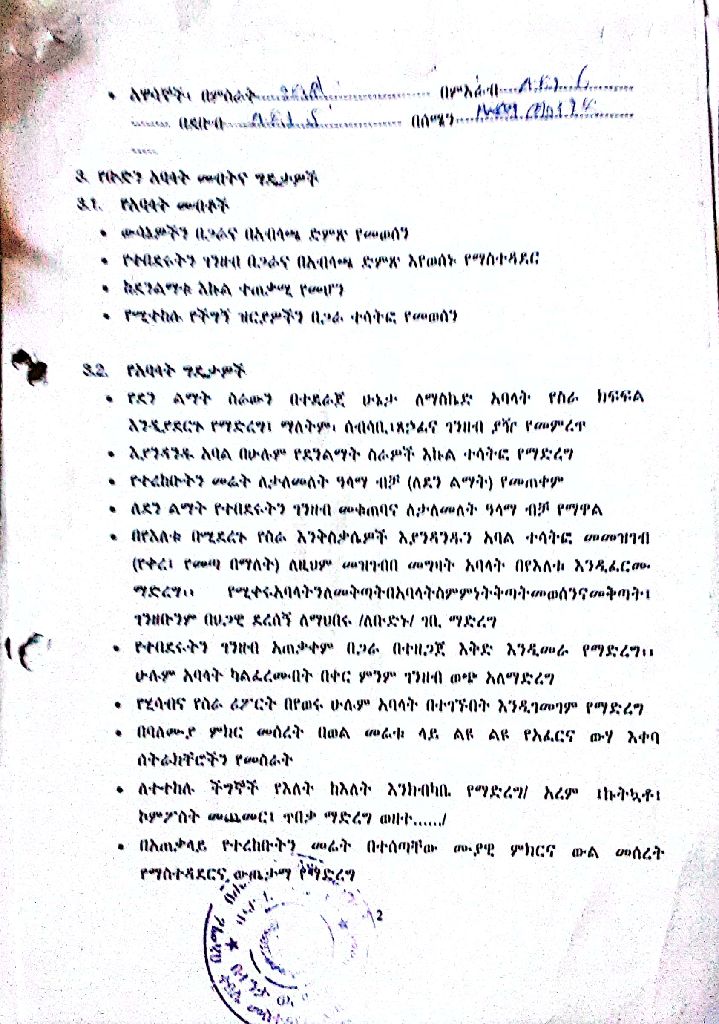 አዋሳኞች፣ በምስራቅ በምእራብ
በደቡብ በሰሜን
3. የቡድን አባላት መብትና ግዴታዎች
3.1. የአባላት መብቶች
• ውሳኔዎችን በጋራና በአብላጫ ድምጽ የመወሰን
• የተበደሩትን ገንዘብ በጋራና በአብላጫ ድምጽ እየወሰኑ የማስተዳደር
• ከደንልማቱ እኩል ተጠቃሚ የመሆን
• የሚተከሉ የችግኝ ዝርያዎችን በጋራ ተሳትፎ የመወሰን
3.2. የአባላት ግዴታዎች
• የደን ልማት ስራውን በተደራጀ ሁኔታ ለማስኬድ አባላት የስራ ክፍፍል
እንዲያደርጉ የማድረግ፣ ማለትም፣ ሰብሳቢ፣ጸኃፊና ገንዘብ ያዥ የመምረጥ
• እያንዳንዱ አባል በሁሉም የደንልማት ስራዎች እኩል ተሳትፎ የማድረግ
• የተረከቡትን መሬት ለታለመለት ዓላማ ብቻ (ለደን ልማት) የመጠቀም
• ለደን ልማት የተበደሩትን ገንዘብ መቁጠባና ለታለመለት ዓላማ ብቻ የማዋል
• በየእለቱ በሚደረጉ የስራ እንቅስቃሴዎች እያንዳንዱን አባል ተሳትፎ መመዝገብ
(የቀረ፣ የመጣ በማለት) ለዚህም መዝገብበ መግባት አባላት በየእለቱ እንዲፈርሙ
ማድረግ፡፡ የሚቀሩአባላትንለመቅጣትበአባላትስምምነትቅጣትመወሰንናመቅጣት፣
ገንዘቡንም በህጋዊ ደረሰኝ ለማህበሩ /ለቡድኑ/ ገቢ ማድረግ
• የተበደሩትን ገንዘብ አጠቃቀም በጋራ በተዘጋጀ እቅድ እንዲመራ የማድረግ፡፡
ሁሉም አባላት ካልፈረሙበት በቀር ምንም ገንዘብ ወጭ አለማድረግ
• የሂሳብና የስራ ሪፖርት በየወሩ ሁሉም አባላት በተገኙበት እንዲገመገም የማድረግ
• በባለሙያ ምክር መሰረት በወል መሬቱ ላይ ልዩ ልዩ የአፈርና ውሃ እቀባ
ስትራክቸሮችን የመስራት
• ለተተከሉ ችግኞች የእለት ከእለት እንክብካቤ የማድረግ/ አረም ፣ኩትኳቶ፣
ኮምፖስት መጨመር፣ ጥበቃ ማድረግ ወዘተ....../
• በአጠቃላይ የተረከቡትን መሬት በተሰጣቸው ሙያዊ ምክርና ውል መሰረት
የማስተዳደርና ውጤታማ የማድረግ
2